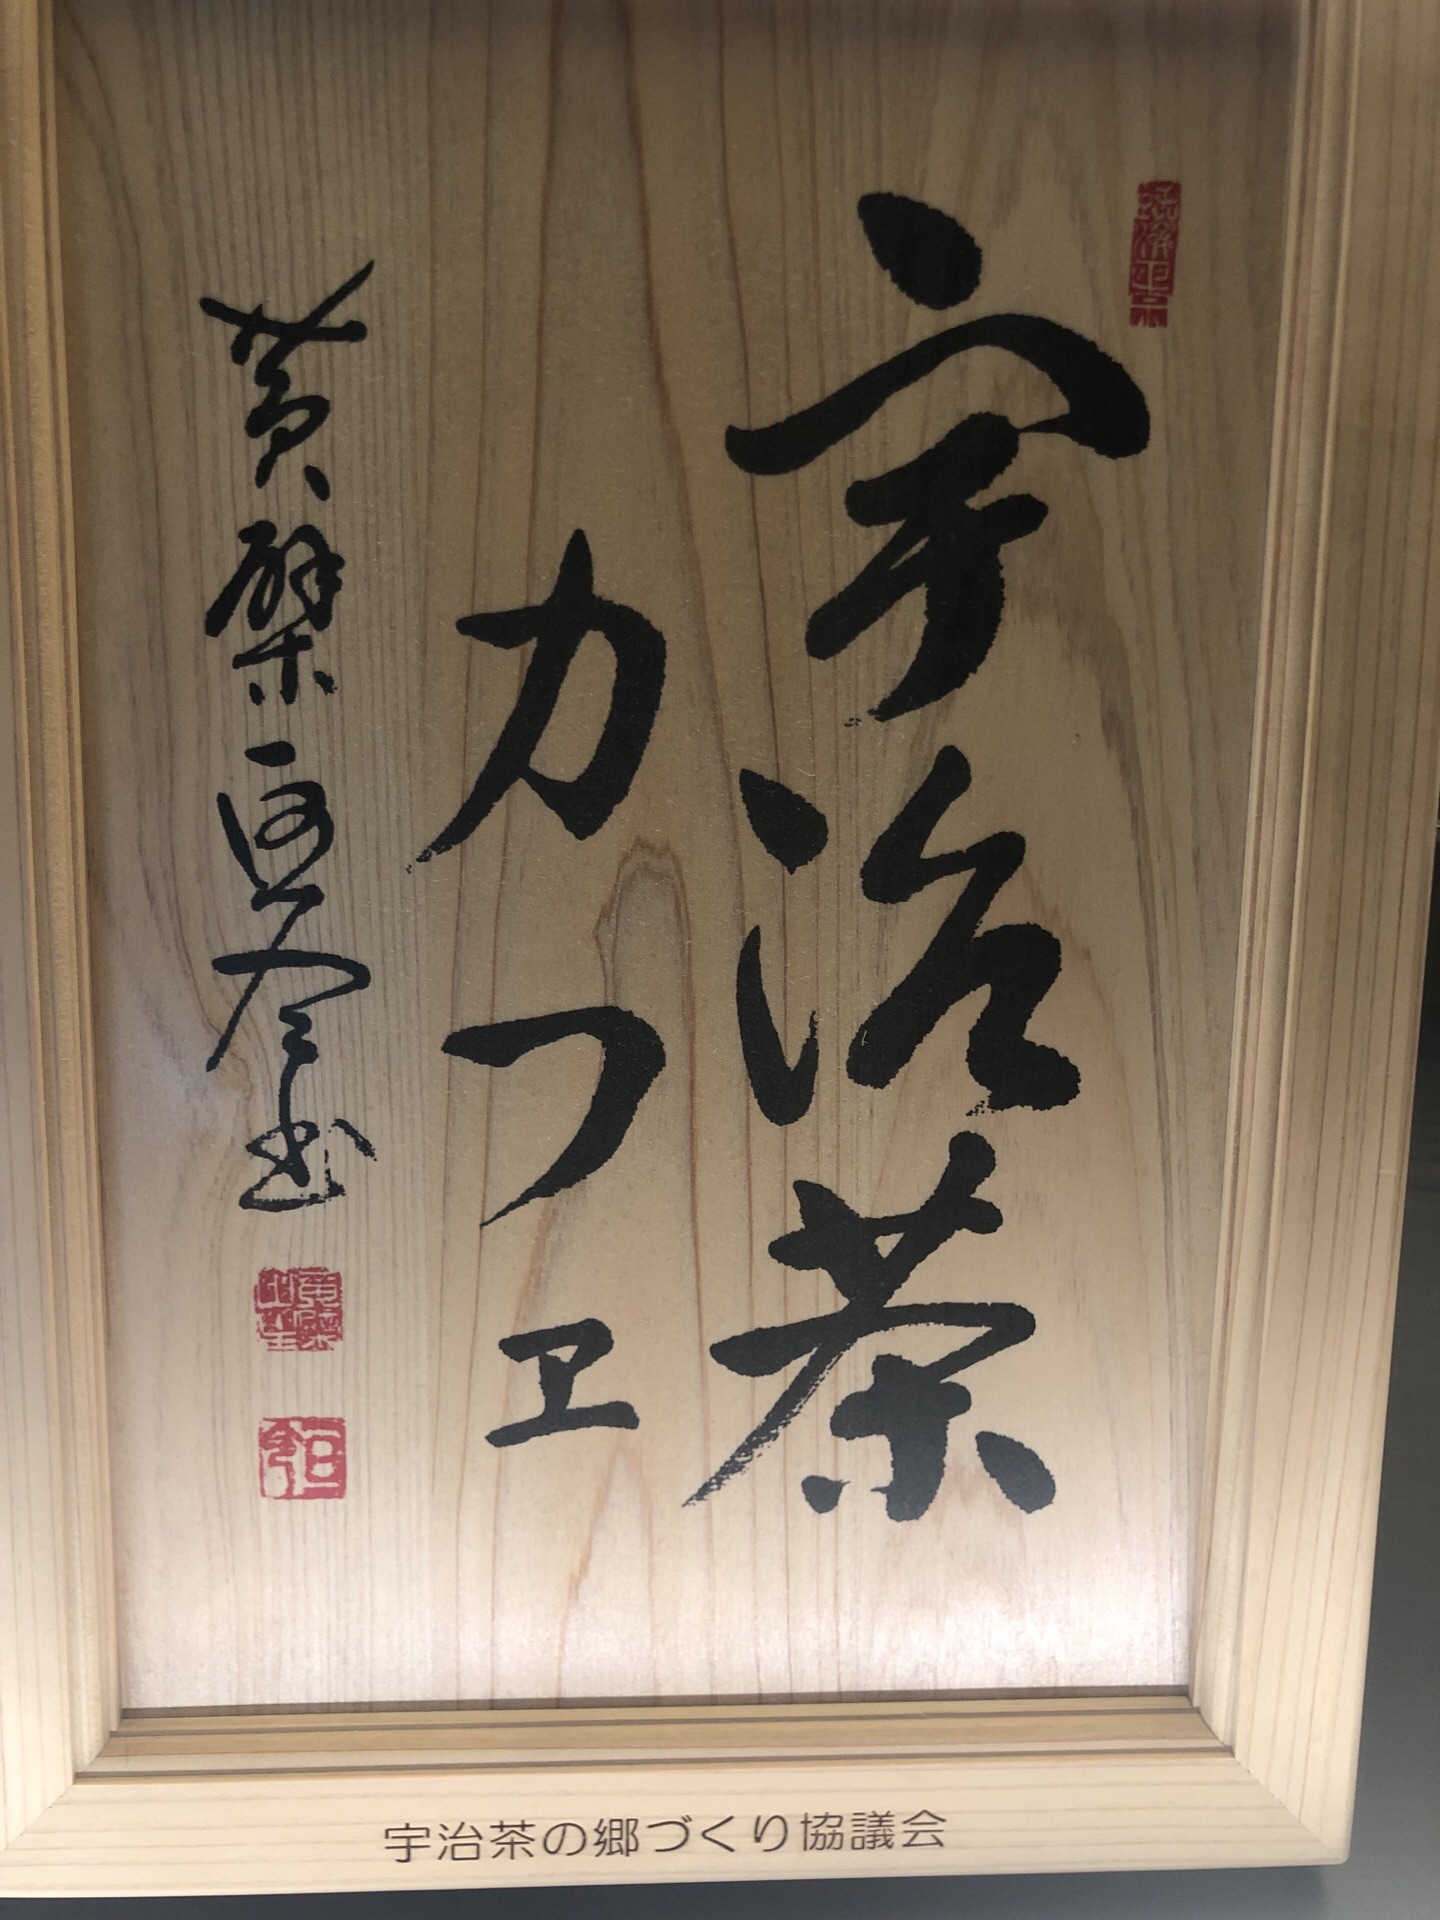 宇治茶
カフェ
黄檗
書
宇治茶の郷づくり協議会